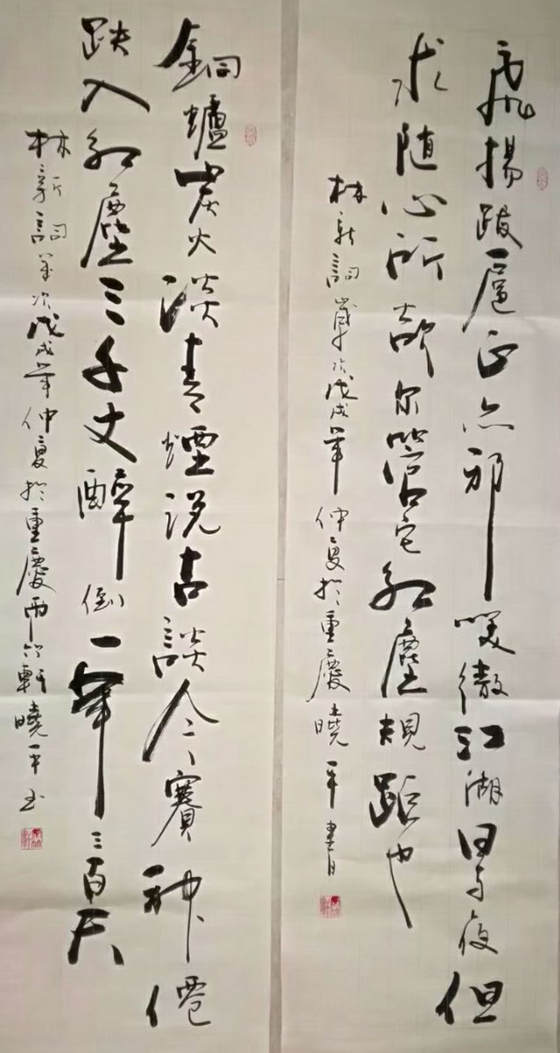 飛揚跋扈正亦邪笑傲江湖日与夜但
求随心所欲尔管它红塵規距也
林新詞歲次戊戌年仲夏於重慶曉平書
銅爐炭火淡青煙说古談今賽神僊
跌入红塵三千丈醉倒一年三百天
林新詞歲次戊戌年仲夏於重慶两江軒曉平书